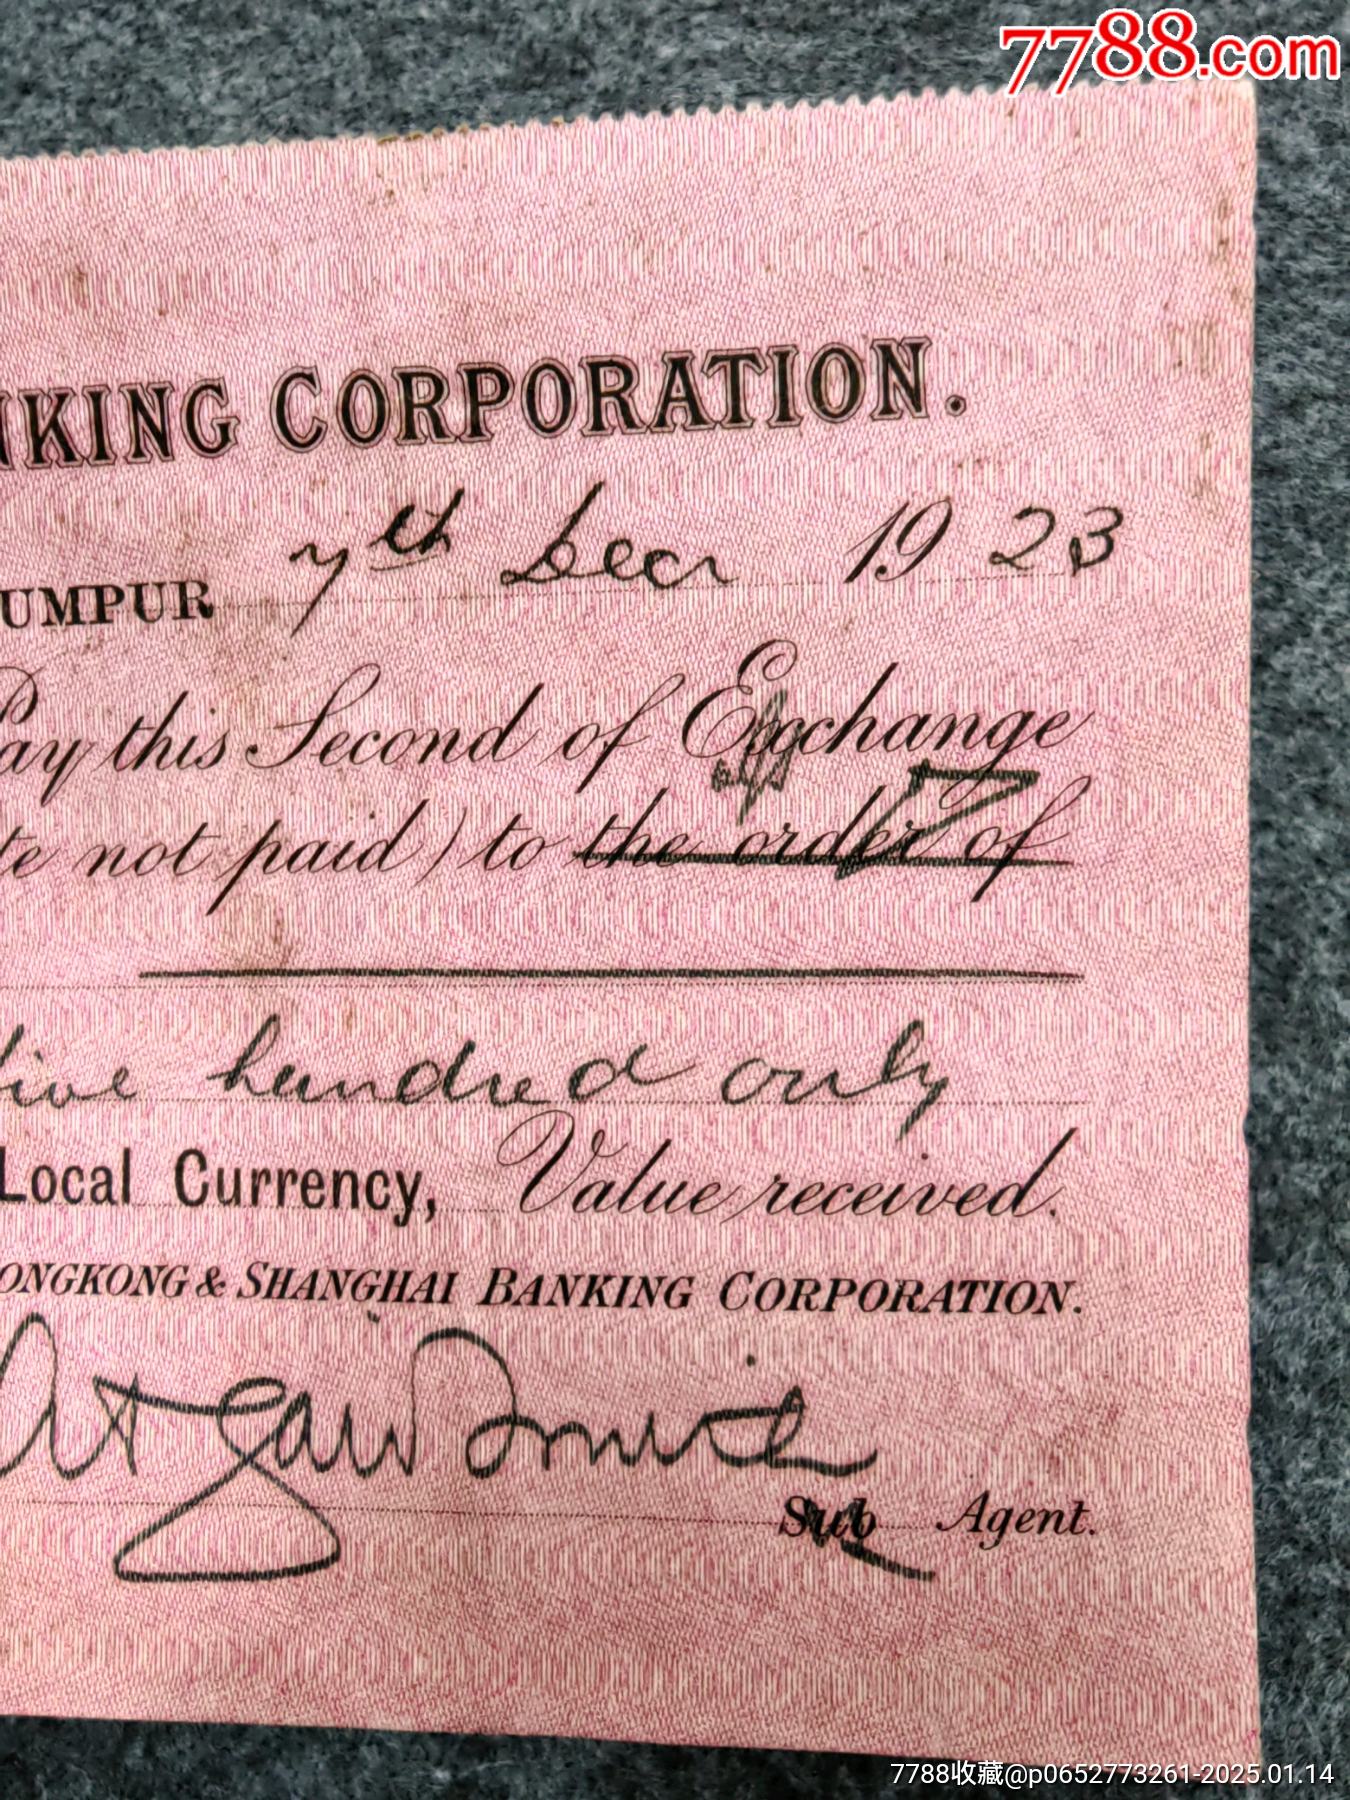 7788.com
NKING CORPORATION.
UMPUR 7th Decr 1923
Pay this Second of Exchange
te not paid) to the order of
five hundred only
Local Currency, Value received.
ONGKONG & SHANGHAI BANKING CORPORATION.
Sub Agent.
7788收藏@p0652773261-2025.01.14